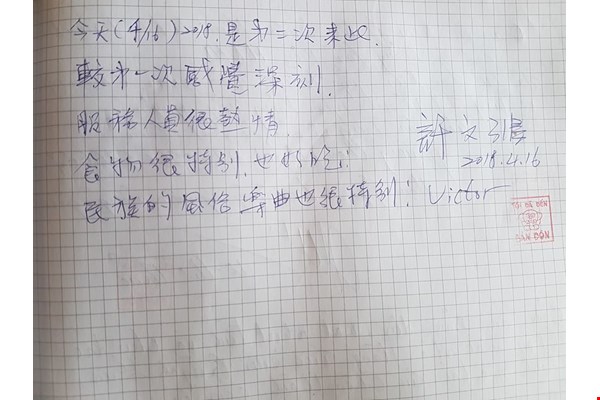 今天(4/16)2018.是第二次來此.
較第一次感覺深刻.
服務人員很熱情
食物很特别.也好吃;
民族的風俗樂曲也很特别!
許文
2018.4.16
Victor
BẢN ĐÔN